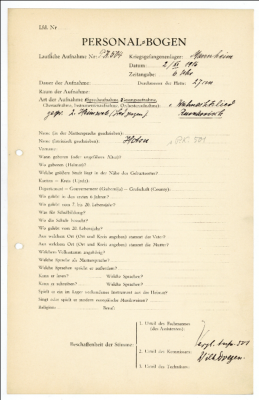 Lfd. Nr.
PERSONAL-BOGEN
Laufliche Aufnahme Nr.: PK 504
Kriegsgefangenenlager: Mannheim
Datum: 2/XI 1916
Zeitangabe: 6 Uhr
Dauer der Aufnahme:
Durchmesser der Platte: 27 cm
Raum der Aufnahme:
Art der Aufnahme (Sprechaufnahme, Gesangsaufnahme,
Choraufnahme, Instrumentenaufnahme, Orchesteraufnahme):
Name (in der Muttersprache geschrieben):
Name (lateinisch geschrieben):
Vorname:
Wann geboren (oder ungefähres Alter)?
Wo geboren (Heimat)?
Welche größere Stadt liegt in der Nähe des Geburtsortes?
Kanton – Kreis (Ujedz):
Departement – Gouvernement (Gubernija) – Grafschaft (County):
Wo gelebt in den ersten 6 Jahren?
Wo gelebt vom 7. bis 20. Lebensjahr?
Was für Schulbildung?
Wo die Schule besucht?
Wo gelebt vom 20. Lebensjahr?
Aus welchem Ort (Ort und Kreis angeben) stammt der Vater?
Aus welchem Ort (Ort und Kreis angeben) stammt die Mutter?
Welchem Volksstamm angehörig?
Welche Sprache als Muttersprache?
Welche Sprachen spricht er außerdem?
Kann er lesen? Welche Sprachen?
Kann er schreiben? Welche Sprachen?
Spielt er ein im Lager vorhandenes Instrument aus der Heimat?
Singt oder spielt er modern europäische Musikweisen?
Religion: Beruf:
Beschaffenheit der Stimme:
1. Urteil des Fachmannes
(des Assistenten):
2. Urteil des Kommissars:
3. Urteil des Technikers: